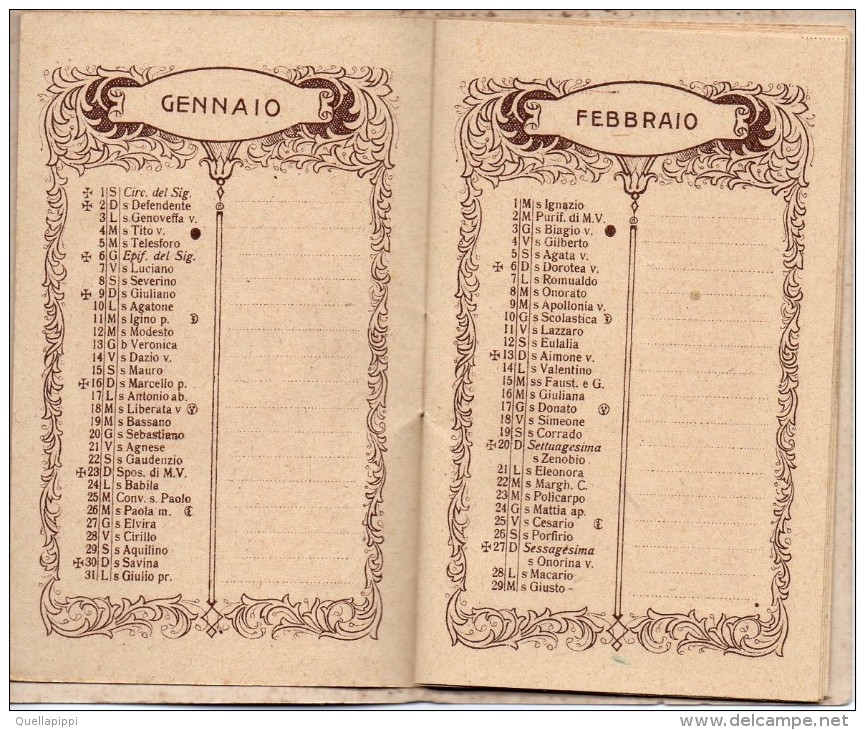 GENNAIO
✠ 1 S Circ. del Sig.
✠ 2 D s Defendente
3 L s. Genoveffa v.
4 M s Tito v.
5 M s Telesforo
✠ 6 G Epif. del Sig.
7 V s Luciano
8 S s Severino
✠ 9 D s Giuliano
10 L s Agatone
11 M s Igino p.
12 M s Modesto
13 G b Veronica
14 V s Dazio v.
15 S s Mauro
✠ 16 D s Marcello p.
17 L s Antonio ab.
18 M s Liberata v
19 M s Bassano
20 G s Sebastiano
21 V s Agnese
22 S s Gaudenzio
✠ 23 D Spos. di M.V.
24 L s Babila
25 M Conv. s. Paolo
26 M s Paola m.
27 G s Elvira
28 V s Cirillo
29 S s Aquilino
✠ 30 D s Savina
31 L s Giulio pr.
FEBBRAIO
1 M s Ignazio
2 M Purif. di M.V.
3 G s Biagio v.
4 V s Gilberto
5 S s Agata v.
✠ 6 D s Dorotea v.
7 L s Romualdo
8 M s Onorato
9 M s Apollonia v.
10 G s Scolastica
11 V s Lazzaro
12 S s Eulalia
✠ 13 D s Aimone v.
14 L s Valentino
15 M ss Faust. e G.
16 M s Giuliana
17 G s Donato
18 V s Simeone
19 S s Corrado
✠ 20 D Settuagesima
s Zenobio
21 L s Eleonora
22 M s Margh. C.
23 M s Policarpo
24 G s Mattia ap.
25 V s Cesario
26 S s Porfirio
✠ 27 D Sessagesima
s Onorina v.
28 L s Macario
29 M s Giusto
Quellapippi
www.delcampe.net